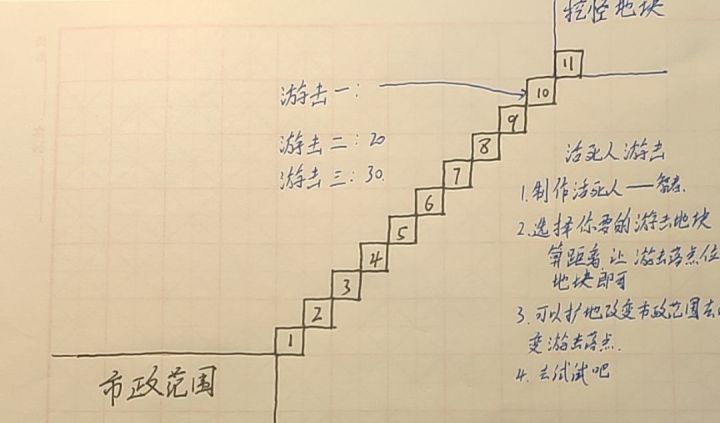 挖怪地块
11
10
游击一:
9
游击二:20
8
活死人游击
游击三:30
7
1.制作活死人——智者.
6
2.选择你要的游击地块
5
算距离.让游击落点位
4
地块即可
3
3.可以扩地改变市政范围去
2
变游击落点.
1
4.去试试吧
市政范围